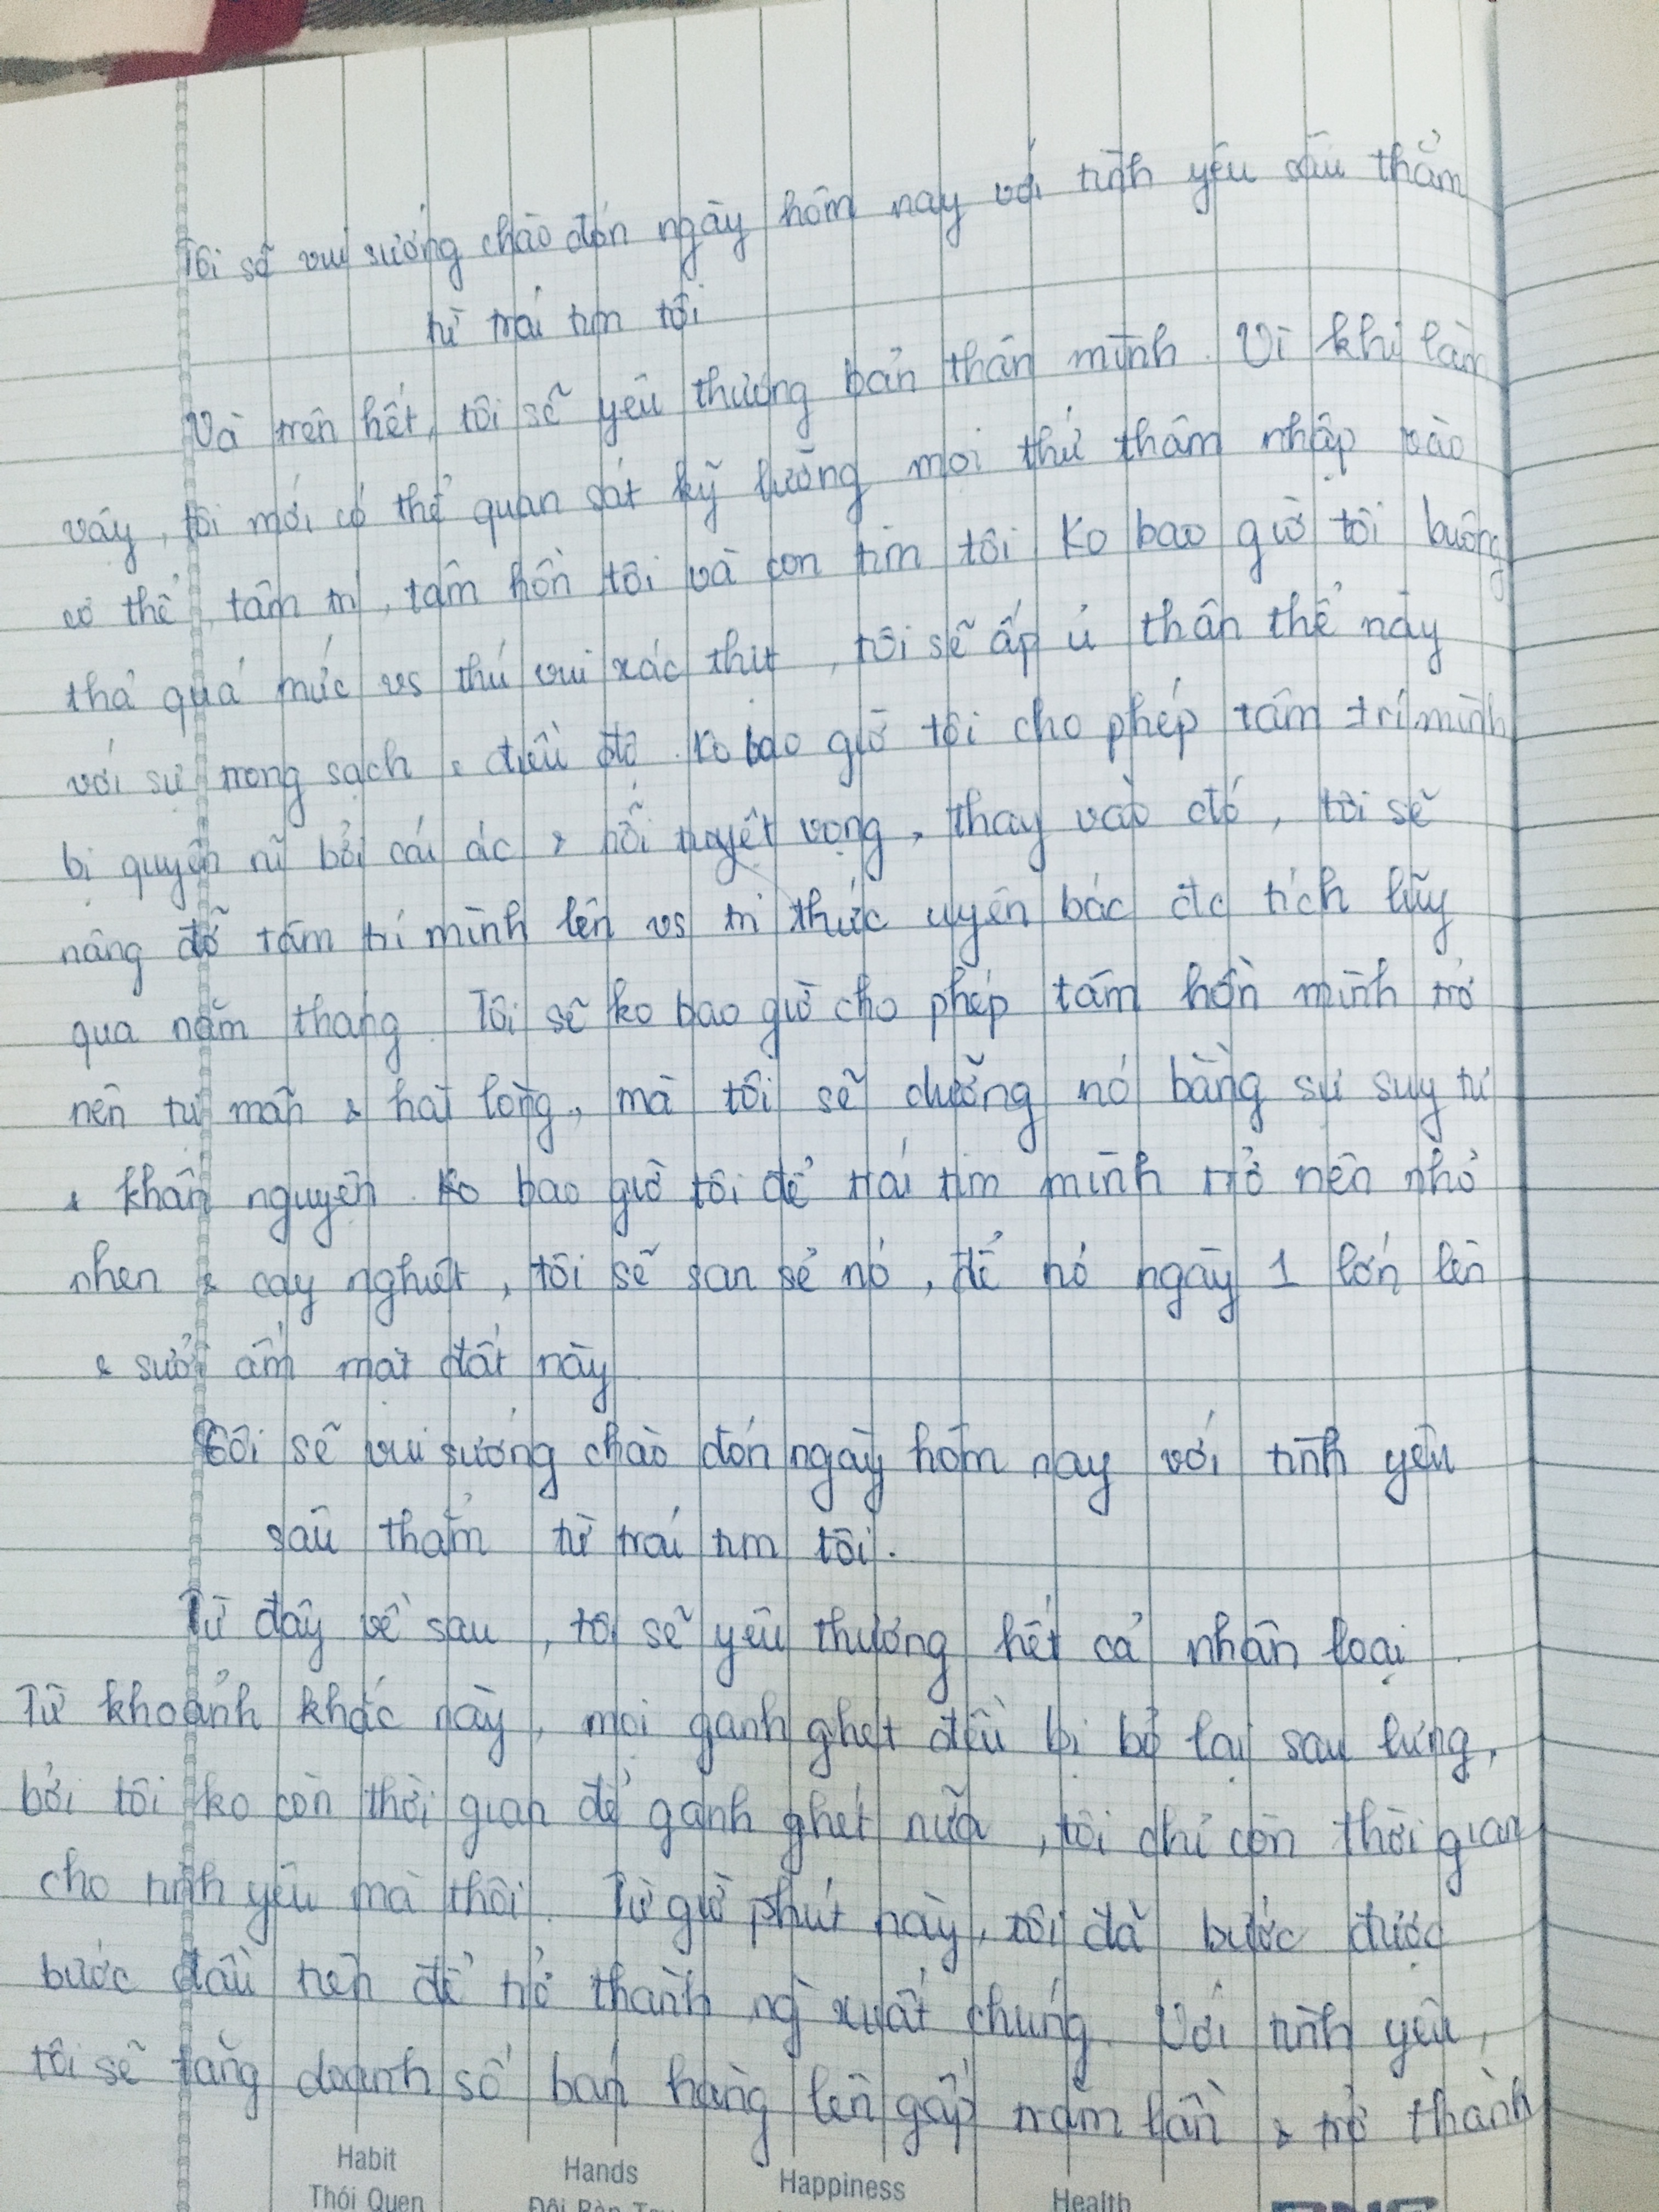 Tôi sẽ vui sướng chào đón ngày hôm nay với tình yêu sâu thẳm
từ trái tim tôi
Và trên hết, tôi sẽ yêu thương bản thân mình. Vì khi làm
vậy, tôi mới có thể quan sát kỹ lưỡng mọi thứ thâm nhập vào
cơ thể, tâm trí, tâm hồn tôi và con tim tôi. Ko bao giờ tôi buông
thả quá mức vs thú vui xác thịt, tôi sẽ ấp ủ thân thể này
với sự trong sạch & điều độ. Ko bao giờ tôi cho phép tâm trí mình
bị quyến rũ bởi cái ác & nỗi tuyệt vọng, thay vào đó, tôi sẽ
nâng đỡ tâm trí mình lên vs tri thức uyên bác đc tích lũy
qua năm tháng. Tôi sẽ ko bao giờ cho phép tâm hồn mình trở
nên tự mãn & hài lòng, mà tôi sẽ dưỡng nó bằng sự suy tư
& khấn nguyện. Ko bao giờ tôi để trái tim mình trở nên nhỏ
nhen & cay nghiệt, tôi sẽ san sẻ nó, để nó ngày 1 lớn lên
& sưởi ấm mặt đất này.
Tôi sẽ vui sướng chào đón ngày hôm nay với tình yêu
sâu thẳm từ trái tim tôi.
Từ đây về sau, tôi sẽ yêu thương hết cả nhân loại.
Từ khoảnh khắc này, mọi ganh ghét đều bị bỏ lại sau lưng,
bởi tôi ko còn thời gian để ganh ghét nữa, tôi chỉ còn thời gian
cho tình yêu mà thôi. Từ giờ phút này, tôi đã bước được
bước đầu tiên để trở thành ng xuất chúng. Với tình yêu,
tôi sẽ tăng doanh số bán hàng lên gấp trăm lần & trở thành
Habit Hands Happiness Health
Thói Quen Đôi Bàn Tay